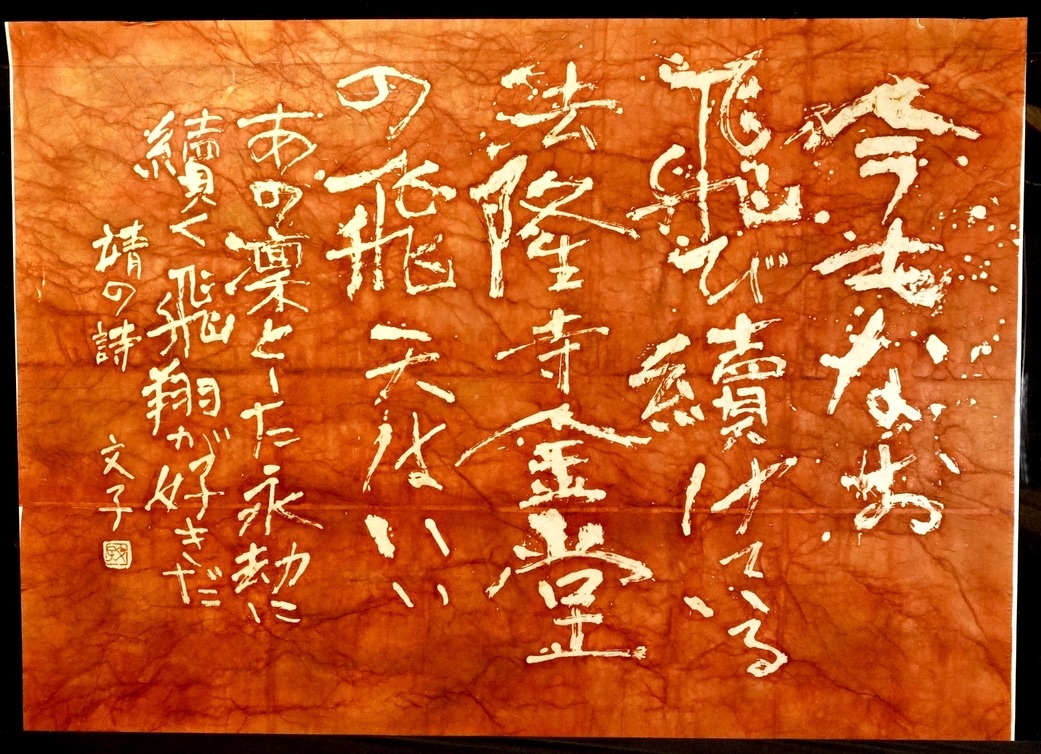 今もなお
飛び續けている
法隆寺金堂
の飛天はいい
あの凛とした永劫に
續く飛翔が好きだ
靖の詩
文子